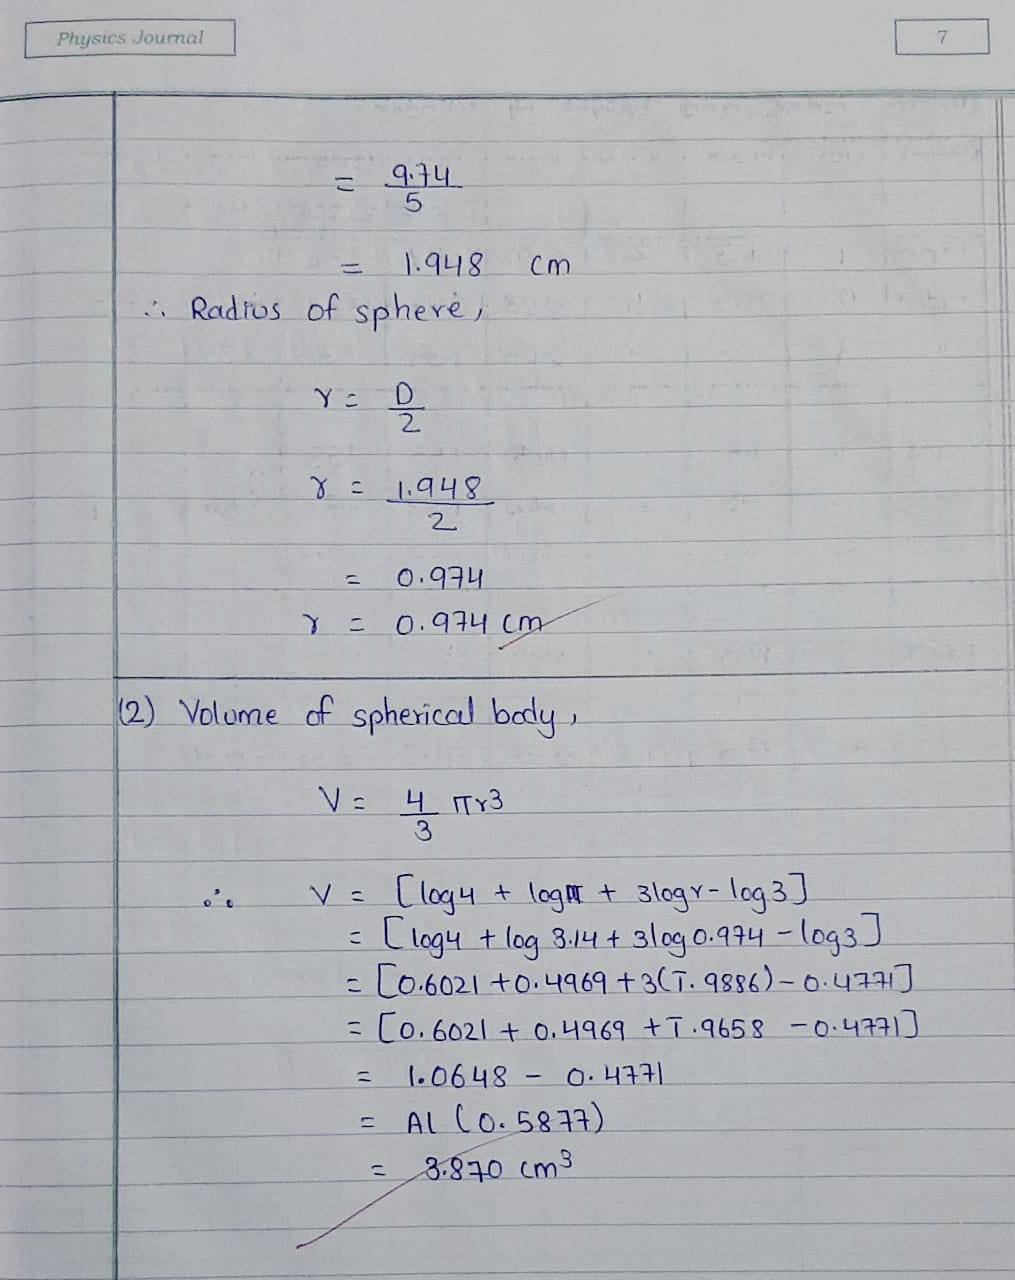 Physics Journal
7
= 9.74/5
= 1.948 cm
∴ Radius of sphere,
r = D/2
r = 1.948/2
= 0.974
r = 0.974 cm
(2) Volume of spherical body,
V = 4/3 πr3
∴ V = [log4 + logπ + 3logr - log3]
= [log4 + log 3.14 + 3log 0.974 - log3]
= [0.6021 + 0.4969 + 3(1̅.9886) - 0.4771]
= [0.6021 + 0.4969 + 1̅.9658 - 0.4771]
= 1.0648 - 0.4771
= AL (0.5877)
= 3.870 cm³